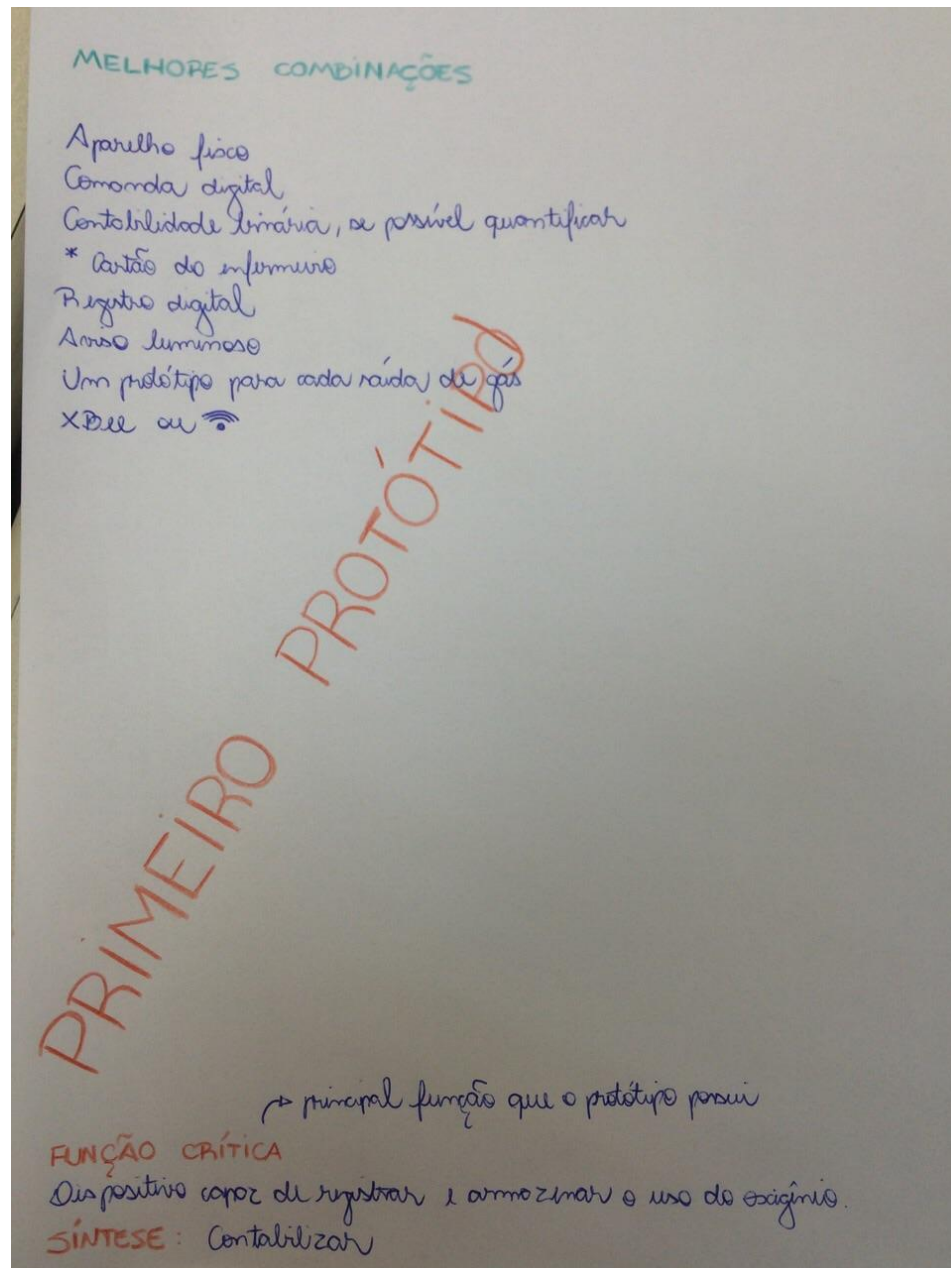 MELHORES COMBINAÇÕES
Aparelho físco
Comanda digital
Contabilidade binária, se possível quantificar
* Cartão do enfermeiro
Registro digital
Aviso luminoso
Um protótipo para cada saída de gás
XBee ou
PRIMEIRO PROTÓTIPO
→ principal função que o protótipo possui
FUNÇÃO CRÍTICA
Dispositivo capaz de registrar e armazenar o uso do oxigênio.
SÍNTESE: Contabilizar